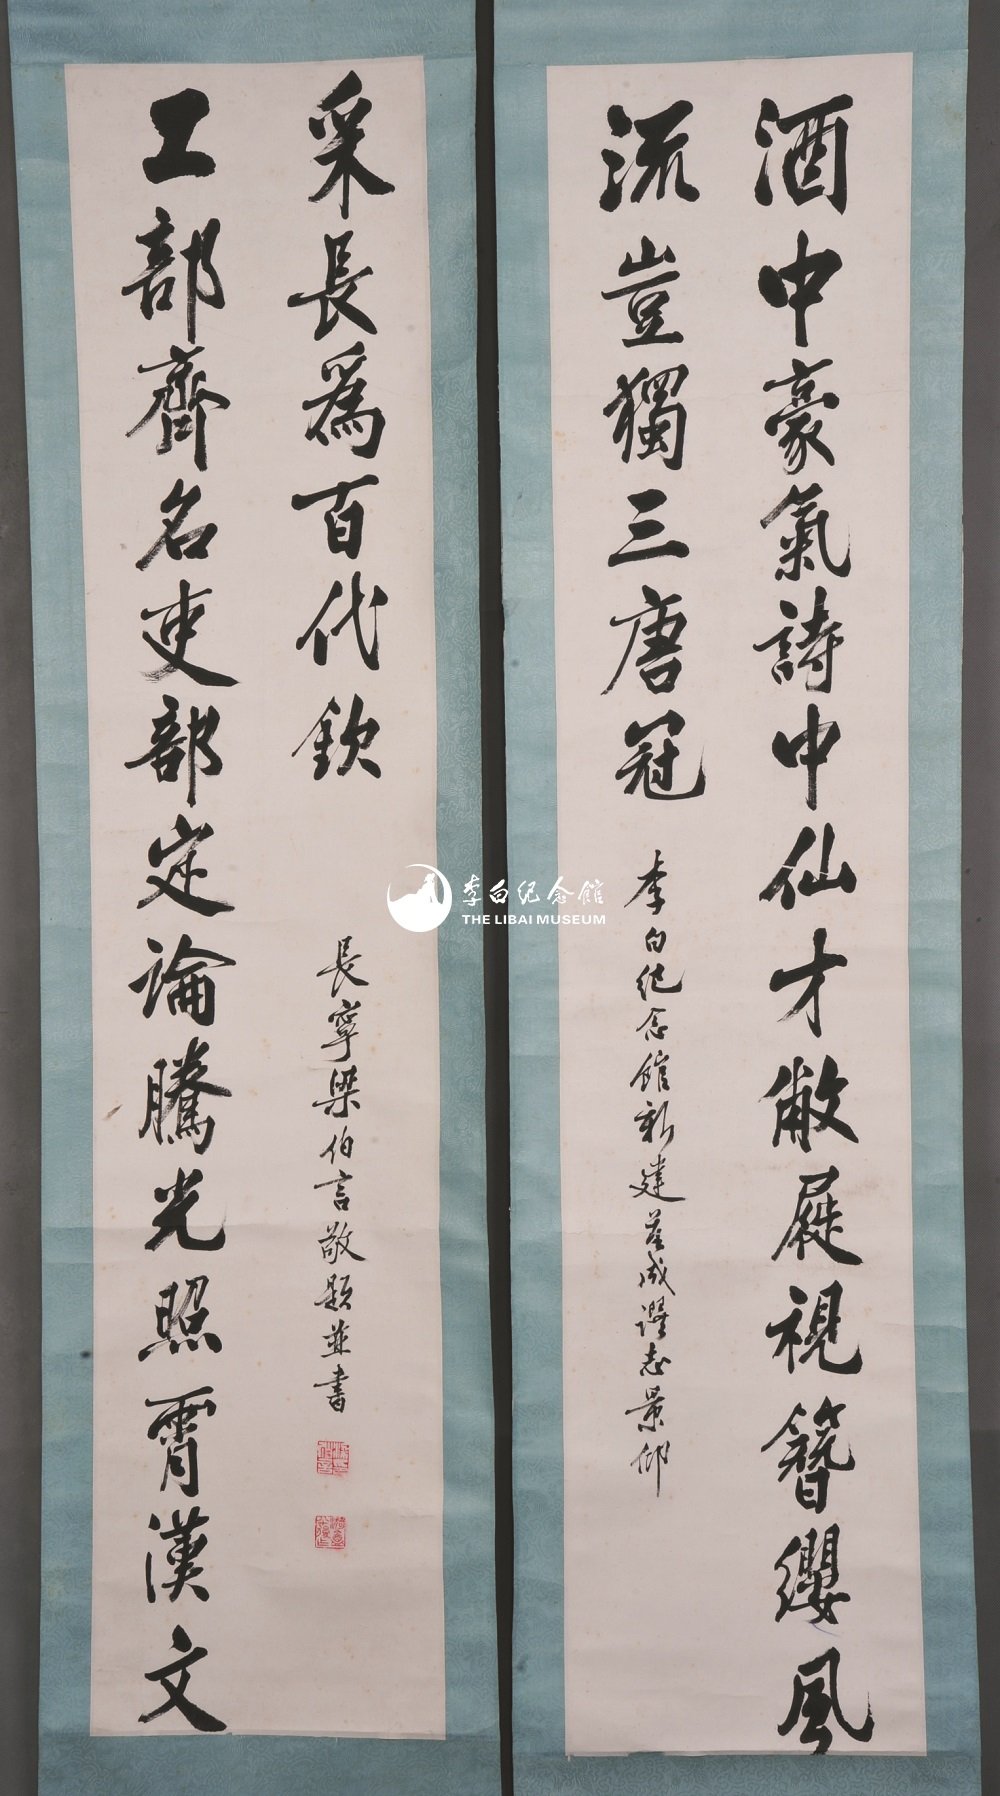 酒中豪氣詩中仙才敝屣視簪纓風
流豈獨三唐冠
李白纪念館新建落成謹志景仰
工部齊名吏部定論騰光照霄漢文
采長為百代欽
長寧梁伯言敬題並書
李白纪念館
THE LIBAI MUSEUM